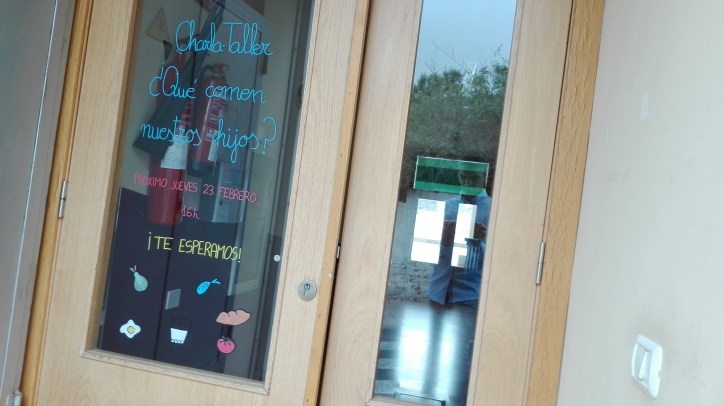 Charla-Taller
¿Qué comen
nuestros hijos?
PRÓXIMO JUEVES 23 FEBRERO
16h
¡TE ESPERAMOS!